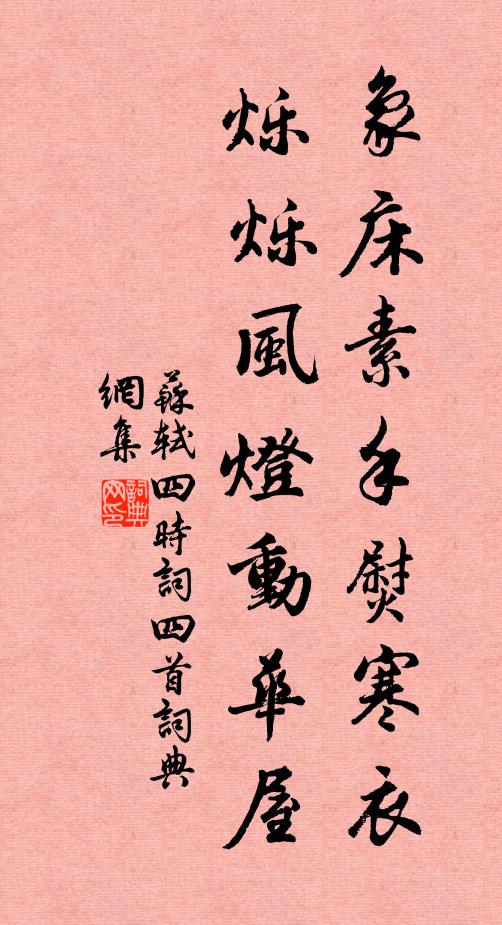 象床素手熨寒衣
烁烁風燈動華屋
蘇軾四時詞四首詞典
網集
詞典
网印